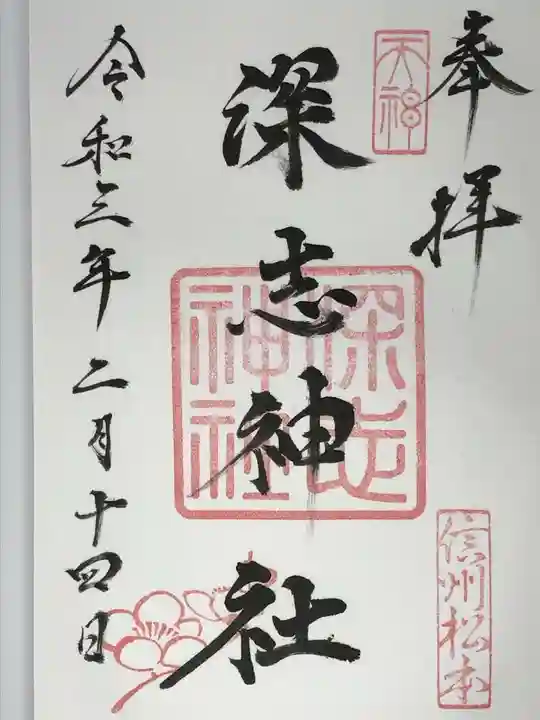 奉拝
天神
信州松本
深志神社
深志神社
令和三年二月十四日